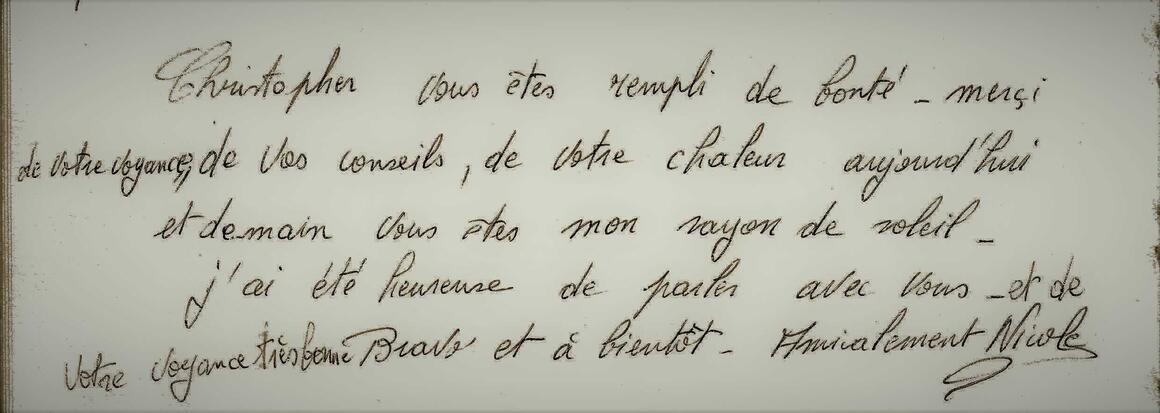 Christopher vous êtes rempli de bonté - merçi
de votre voyance, de vos conseils, de votre chaleur aujourd'hui
et demain vous êtes mon rayon de soleil -
j'ai été heureuse de parler avec vous - et de
votre voyance très bonne Bravo et à bientôt - Amicalement Nicole